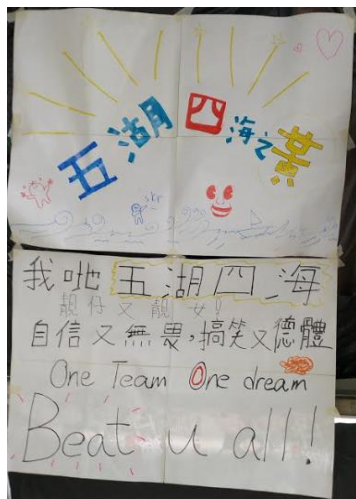 五湖四海之黃
skr
我哋五湖四海
靚仔又靚女!
自信又無畏,搞笑又德體
One Team One dream
Beat u all!